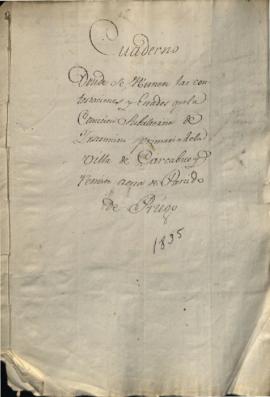 Cuaderno
Donde se reunen las con
testaciones y Estados que la
Comision Subalterna de
Instruccion primaria de la
Villa de Carcabuey
remite de Partido
de Priego
1835